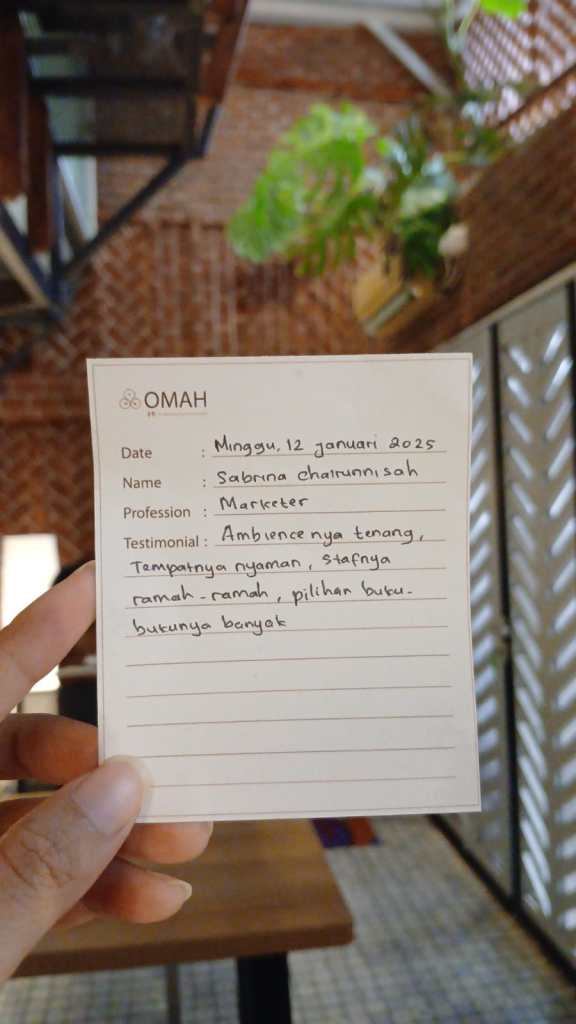 OMAH
Date : Minggu, 12 januari 2025
Name : Sabrina chairunnisah
Profession : Marketer
Testimonial : Ambience nya tenang,
Tempatnya nyaman, stafnya
ramah-ramah, pilihan buku-
bukunya banyak